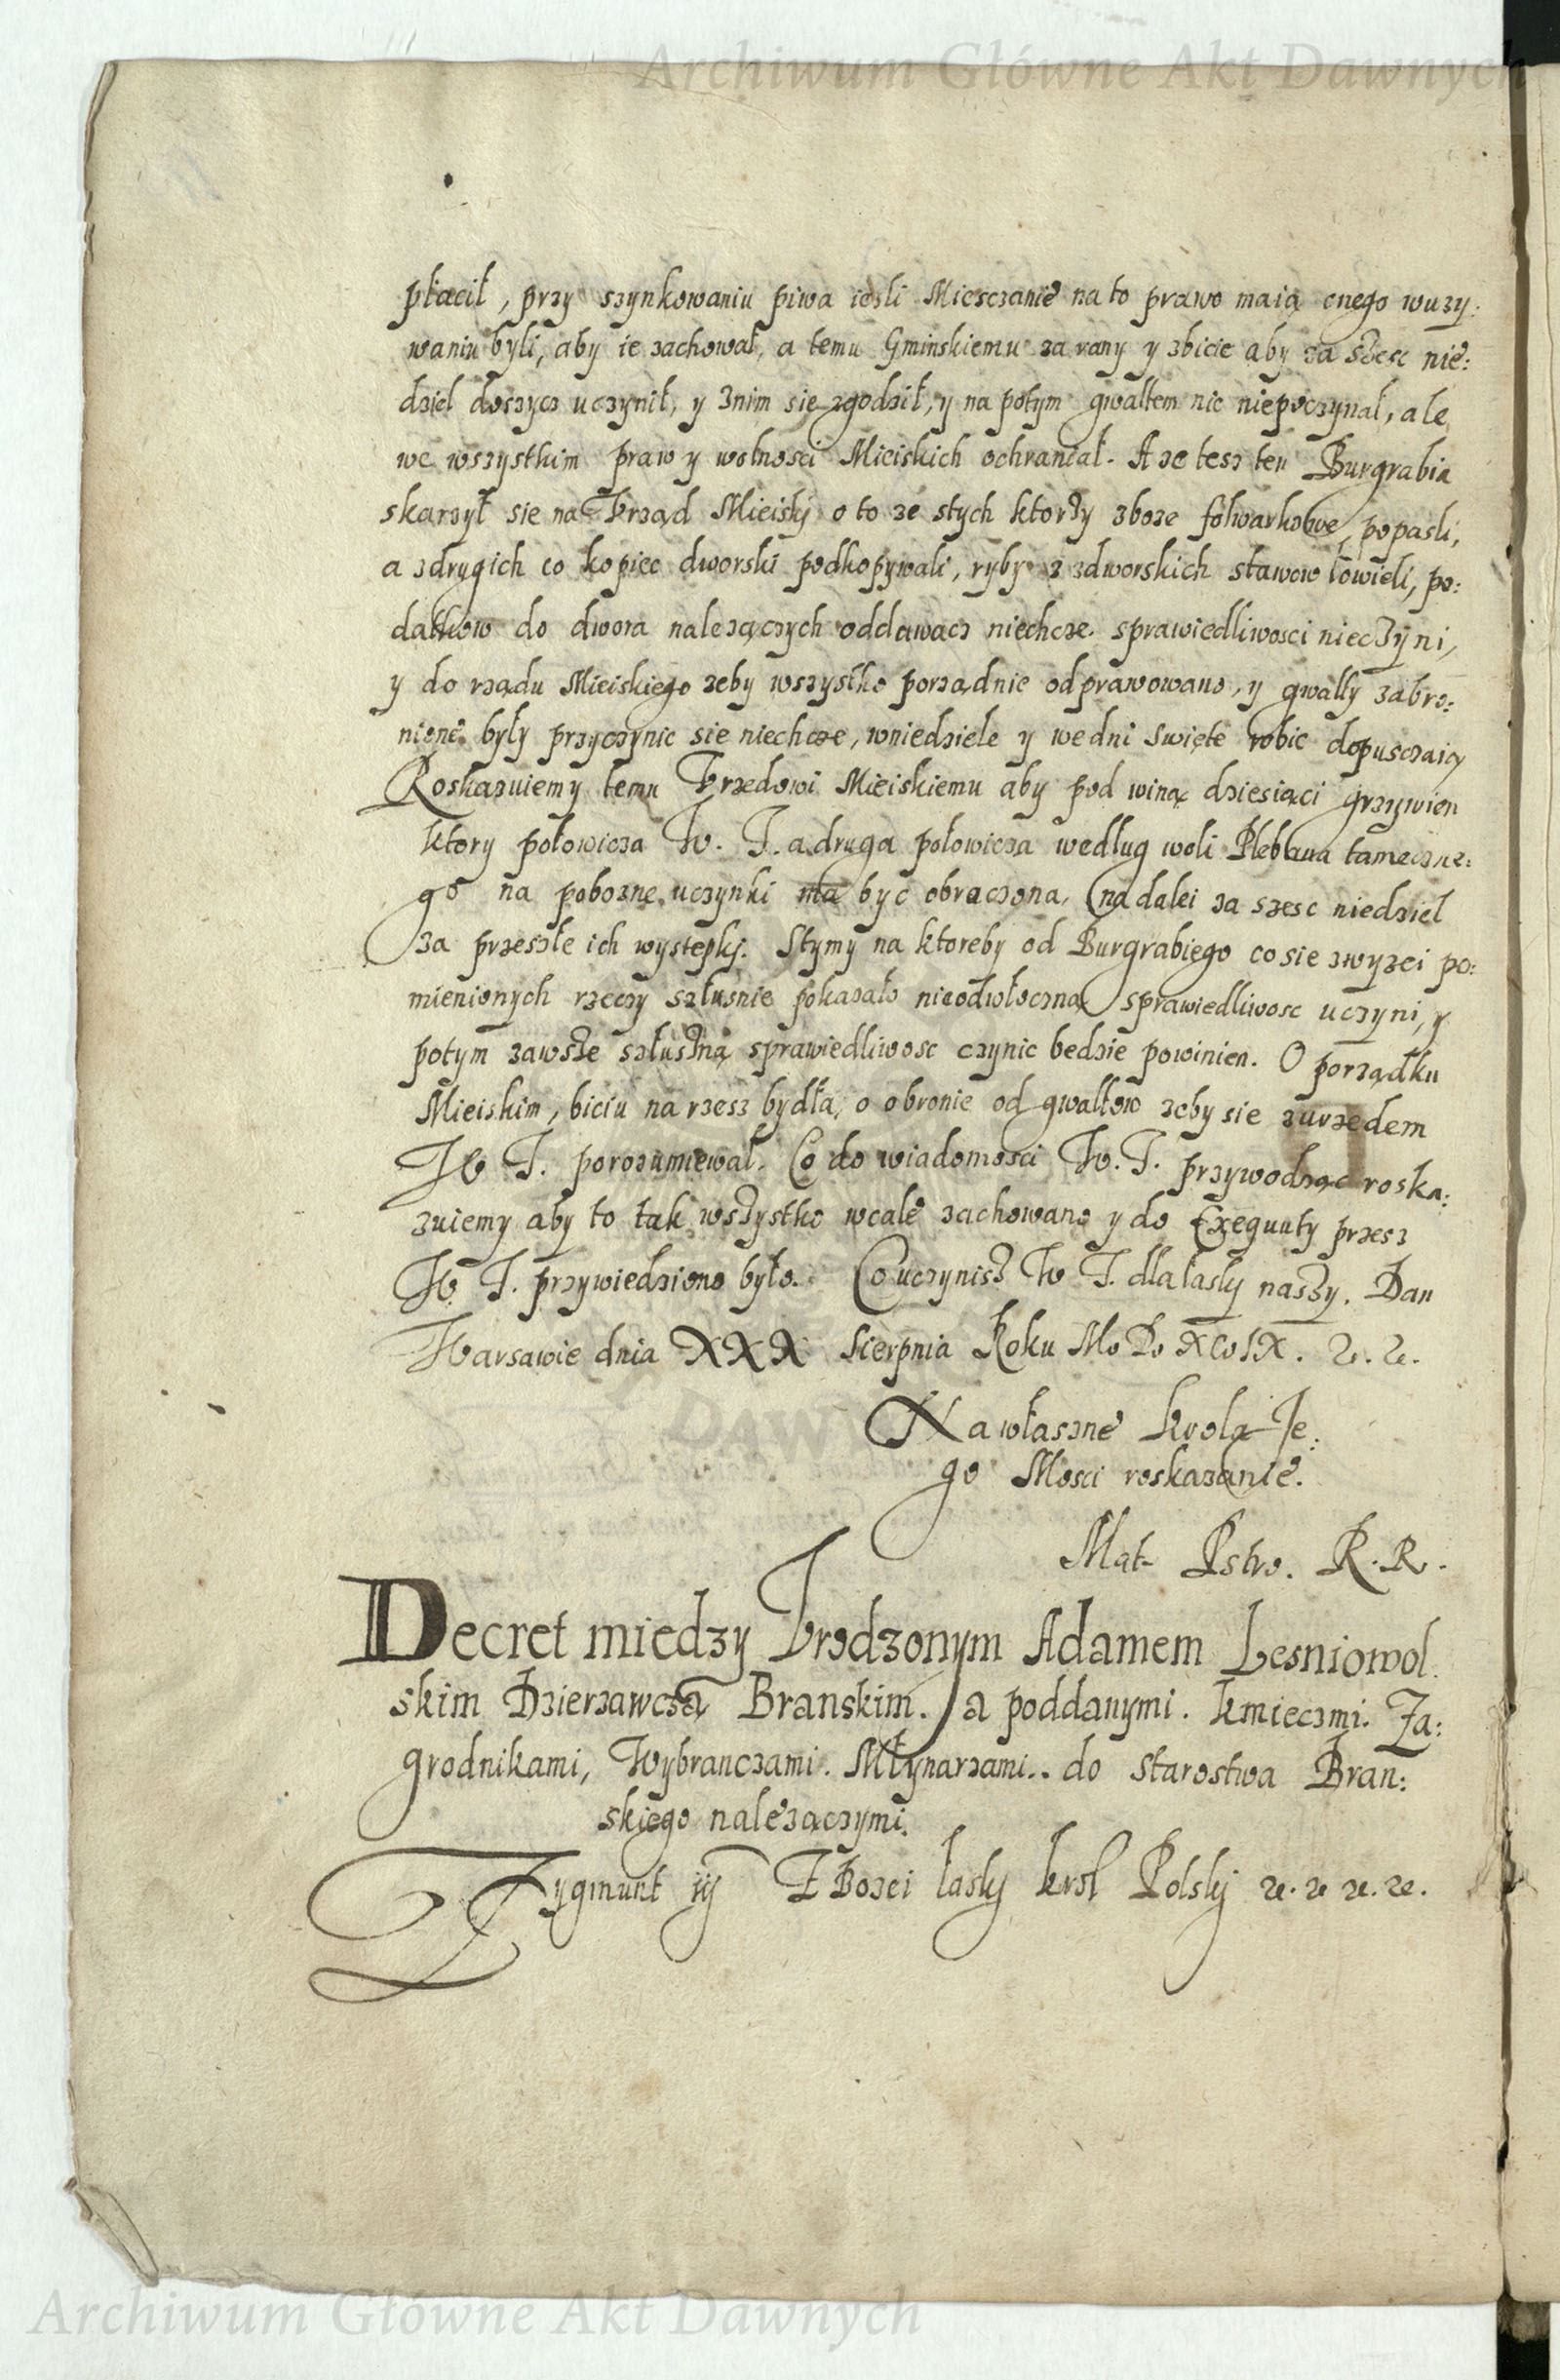 Archiwum Główne Akt Dawnych
płacił, przy szynkowaniu piwa iesli Miesczanie na to prawo maią onego wuzy:
waniu byli, aby ie zachował, a temu Gminskiemu za rany y zbicie aby za szesc nie:
dziel doszycz uczynił, y znim się zgodził, y na potym gwałtem nic niepoczynał, ale
we wszystkim praw y wolnosci Mieiskich ochraniał. A ze tesz ten Burgrabia
skarzył sie na Vrząd Mieiskj o to ze stych ktorzy zboze folwarkowe popasli,
a zdrugich co kopiec dworski podkopywali, ryby z zdworskich stawow łowieli, po:
datkow do dwora nalezączych oddawacz niechcze. sprawiedliwosci nieczyni,
y do rządu Mieiskiego zeby wszystko porządnie odprawowano, y gwałty zabro:
nione były przyczynic sie niechcze, wniedziele y wedni swięte robic dopusczaiąc
Roskazuiemy temu Vrzedowi Mieiskiemu aby pod winą dziesiąci grzywien
ktory połowicza W. T. a druga połowicza według woli Plebana tameczne:
go na pobozne uczynki ma byc obraczona, nadalei za szesc niedziel
za przeszłe ich wystepkj. Stymy na ktoreby od Burgrabiego co sie zwyzei po:
mienionych rzeczy szłusnie pokazało nieodwłoczną sprawiedliwosc uczyni, y
potym zawsze szłuszną sprawiedliwosc czynic bedzie powinien. O porządku
Mieiskim, biciu na rzesz bydła, o obronie od gwałtow zeby sie zurzedem
W T. porozumiewał. Co do wiadomosci W. T. przywodząc roska:
zuiemy aby to tak wszystko wcale zachowano y do Exequuty przesz
W T. przywiedziono było. Co uczynisz W T. dla łaskj naszy. Dan
Warsawie dnia XXX Sierpnia Roku Mo Do XCoIX. &. &.
Na właszne krola Je:
go Mosci roskazanie.
Mat. Pstro. R. R.
Decret miedzy Vrodzonym Adamem Lesniowol
skim Dzierzawczą Branskim. a poddanymi. kmieczmi. Za:
grodnikami, Wybranczami. Młynarzami.. do starostwa Bran:
skiego należaczymi.
Zygmunt iij Z Bozei łaskj krol Polskj &. & &. &.
Archiwum Główne Akt Dawnych